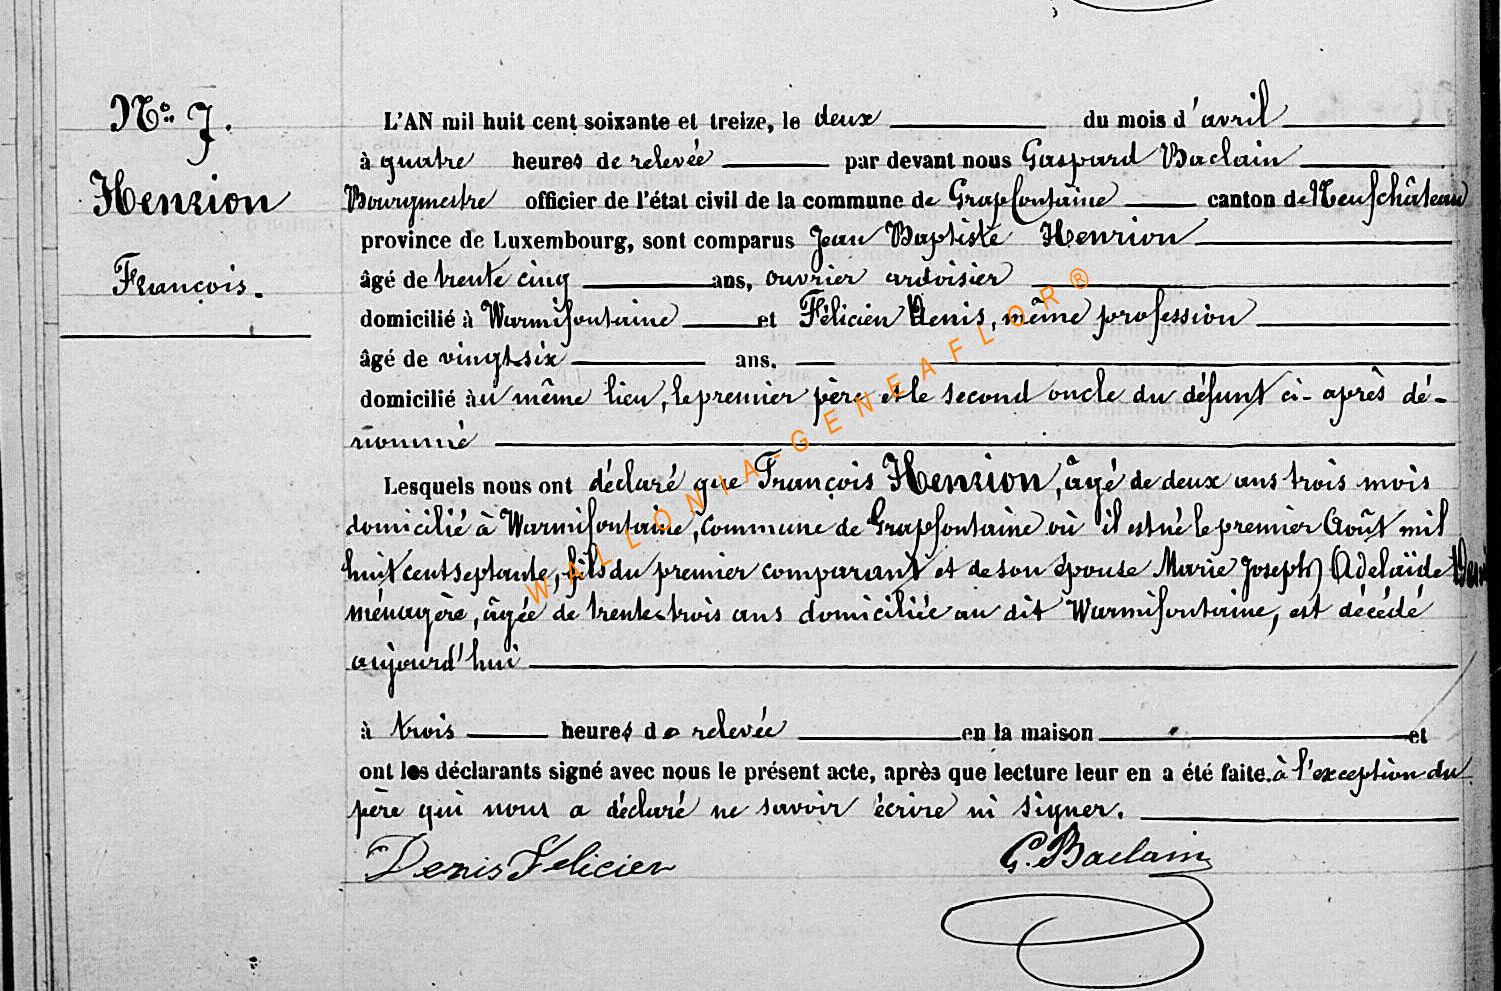 N° 7.
Henrion
François.
L'AN mil huit cent soixante et treize, le deux du mois d'avril
à quatre heures de relevée par devant nous Gaspard Baclain
Bourgmestre officier de l'état civil de la commune de Grapfontaine canton de Neufchâteau
province de Luxembourg, sont comparus Jean Baptiste Henrion
âgé de trente cinq ans, ouvrier ardoisier
domicilié à Warmifontaine et Félicien Denis, même profession
âgé de vingt six ans.
domicilié au même lieu, le premier père et le second oncle du défunt ci-après dé-
nommé
Lesquels nous ont déclaré que François Henrion, âgé de deux ans trois mois
domicilié à Warmifontaine, commune de Grapfontaine où il est né le premier Août mil
huit cent septante, fils du premier comparant et de son épouse Marie Joseph Adelaïde
ménagère, âgée de trente trois ans domiciliée au dit Warmifontaine, est décédé
aujourd'hui
à trois heures de relevée en la maison et
ont les déclarants signé avec nous le présent acte, après que lecture leur en a été faite. à l'exception du
père qui nous a déclaré ne savoir écrire ni signer.
Denis Felicien G. Baclain
WALLONIA-GENEAFLOR®